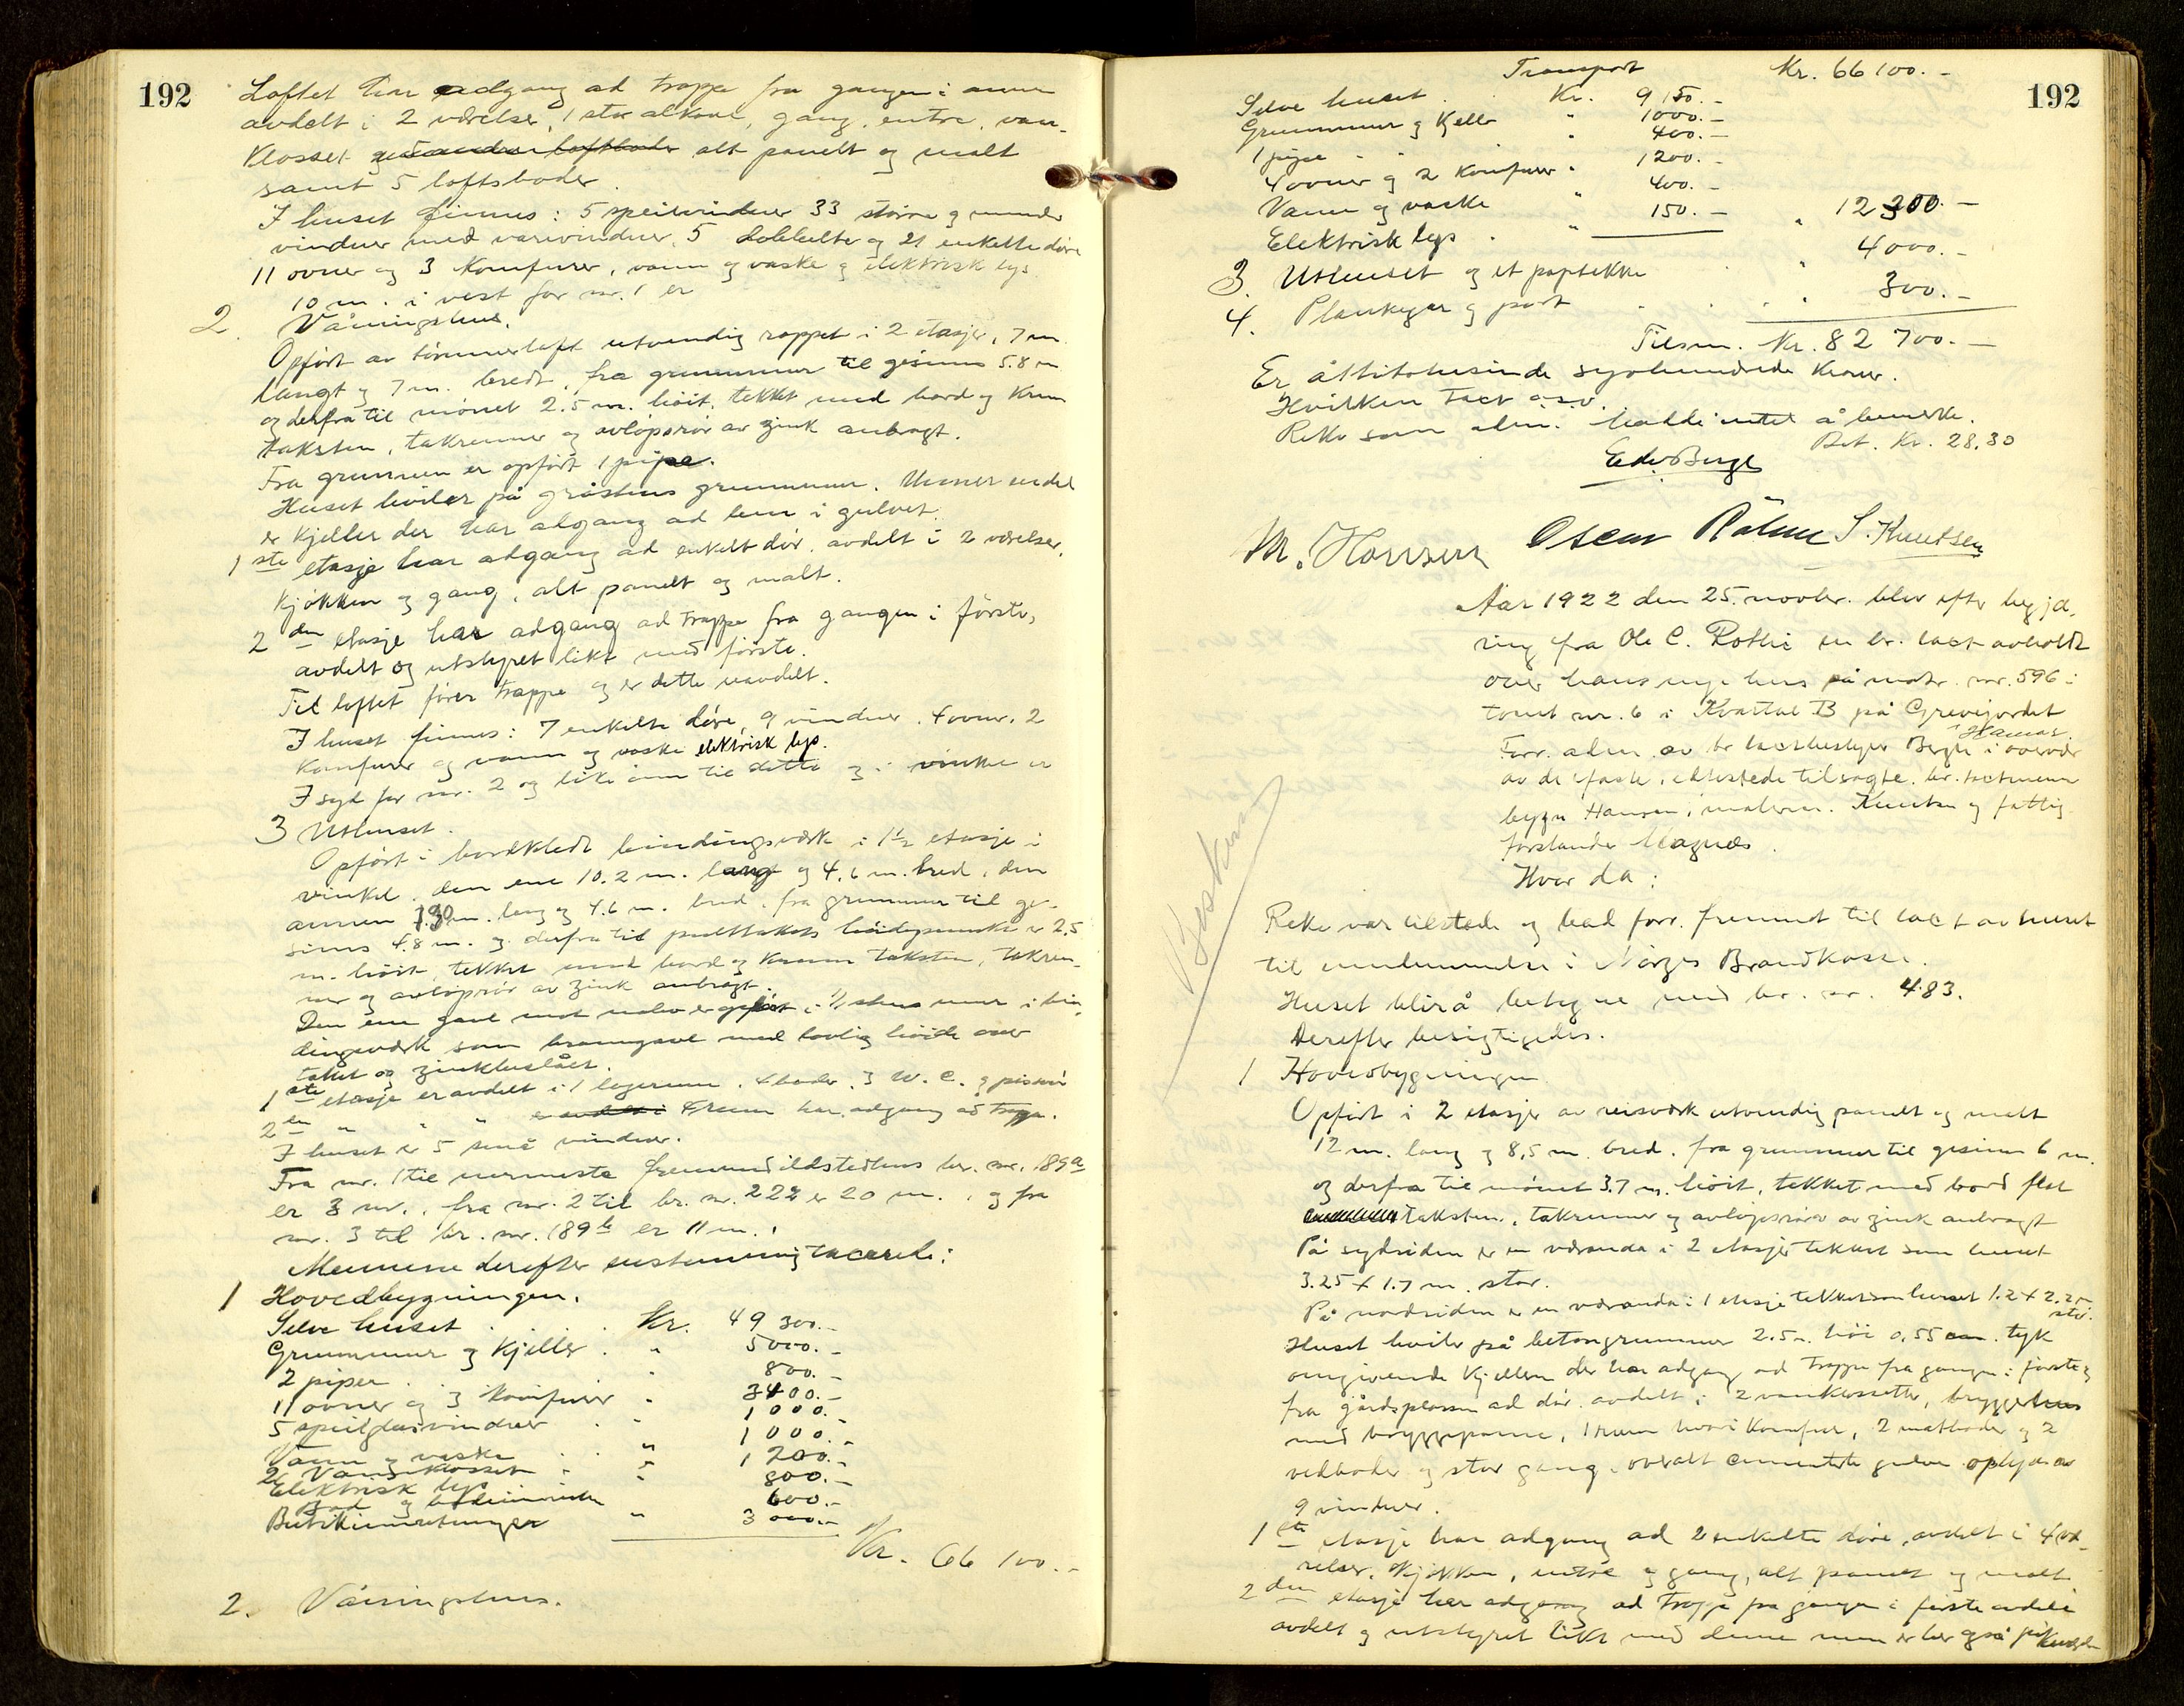 192
Loftet har adgang ad trappe fra gangen i annen
avdelt i 2 værelser, 1 stor alkove, gang, entre, van-
klosset alt panelt og malt
samt 5 loftsboder.
I huset finnes: 5 speilvinduer 33 større og mindre
vinduer med varevinduer, 5 dobbelte og 21 enkelte døre
11 ovner og 3 komfurer, vann og vaske og elektrisk lys.
10 m. i vest for nr. 1 er
2 Våningshus.
Opført av tømmerloft utvendig rappet i 2 etasjer, 7 m.
langt og 7 m. bredt, fra grunnmur til gesims 5.8 m
og derfra til mønet 2.5 m. høit, tekket med bord og krum
taksten, takrenner og avløpsrør av zink anbragt.
Fra grunnen er opført 1 pipe.
Huset hviler på gråstens grunnmur. Under endel
er kjeller der har adgang ad lem i gulvet.
1ste etasje har adgang ad enkelt dør, avdelt i 2 værelser,
kjøkken og gang, alt panelt og malt.
2den etasje har adgang ad trappe fra gangen i første,
avdelt og utstyret likt med første.
Til loftet fører trappe og er dette uavdelt.
I huset finnes: 7 enkelte døre, 9 vinduer, 4 ovner, 2
komfurer og vann og vaske elektrisk lys.
I syd for nr. 2 og like inn til dette og i vinkel er
3 Uthuset.
Opført i bordklædt bindingsverk i 1½ etasje i
vinkel, den ene 10.2 m. lang og 4.6 m. bred, den
annen 7.30 m. lang og 4.6 m. bred, fra grunnmur til ge-
sims 4.8 m. og derfra til pulttakets høidepunkt er 2.5
m. høit, tekket med bord og krum taksten, takren-
ner og avløpsrør av zink anbragt.
Den ene gavl mot nabo er opført i ½ stens mur i bin-
dingsverk som branngavl med lovlig høide over
taket og zinkbeslått.
1ste etasje er avdelt i 1 lagerrum, 4 boder, 3 W.C. og pissoir
2en " " " er avdelt i 4 rum har adgang ad trappe.
I huset er 5 små vinduer.
Fra nr. 1 til nærmeste fremmed ildstedhus br. nr. 189a
er 3 m., fra nr. 2 til br. nr. 222 er 20 m., og fra
nr. 3 til br. nr. 189b er 11 m.
Mennene derefter enstemmig taxerede:
1 Hovedbygningen.
Selve huset . . . Kr. 49 300.-
Grunnmur og kjeller . " 5000.-
2 piper . " 800.-
11 ovner og 3 komfurer " 3400.-
5 speilglasvinduer . " 1000.-
Vann og vaske . . " 1000.-
2 Vandklosset . " 1200.-
Elektrisk lys " 800.-
Bad og badeinnretn 600.-
Butikinnretninger " 3000.-
Kr. 66 100.-
2. Våningshus.
192
Transport Kr. 66 100.-
Selve huset . Kr. 9150.-
Grunnmur og kjeller " 1000.-
1 pipe . . " 400.-
4 ovner og 2 komfurer " 1200.-
Vann og vaske " 400.-
Elektrisk lys . " 150.- " 12 300.-
3. Uthuset og et paptekke . " 4000.-
4. Plankegjær og port . . . " 300.-
Tilsm. Kr. 82 700.-
Er åttitotusinde syvhundrede kroner.
Hvilken taxt o.s.v.
Rekv som alm. hadde intet å bemerke.
Bet. Kr. 28.30
Edv Berge
M. Hansen Oscar Råhne S. Knutsen
Aar 1922 den 25. novbr. blev efter begjæ-
ring fra Ole C. Rothe en br. taxt avholdt
over hans nye hus på matr. nr. 596 i
tomt nr. 6 i Kvartal B på Grevejordet
Hamar.
Forr. alm. av br taxtbestyrer Berge i overvær
av de faste, edfestede tilsagte br. taxtmenn
bygm Hansen, malerm. Knutsen og fattig-
forstander Magnæs.
Hvor da:
Rekv var tilstede og bad forr. fremmet til taxt av huset
til innlemmelse i Norges Brandkasse.
Huset blir å betegne med br. nr. 483.
Derefter besigtigedes.
1 Hovedbygningen
Opført i 2 etasjer av reisværk utvendig panelt og malt
12 m. lang og 8,5 m. bred, fra grunnmur til gesims 6 m.
og derfra til mønet 3.7 m. høit, tekket med bord flat
taksten, takrenner og avløpsrør av zink anbragt
På sydsiden er en væranda i 2 etasjer tekket som huset
3.25 x 1.7 m. stor.
På nordsiden er en væranda i 1 etasje tekket som huset 1.2 x 2.25
stor.
Huset hviler på betongrunnmur 2.5 m. høi 0,55 cm. tyk
omgivende kjelleren der har adgang ad trappe fra gangen i første og
fra gårdsplassen ad dør, avdelt i 2 vanklossetter, bryggerhus
med bryggepanne, 1 rum hvori komfur, 2 matboder og 2
vedboder og stor gang, overalt cementerte gulve oplyses av
9 vinduer.
1ste etasje har adgang ad 2 enkelte døre, avdelt i 4 væ-
relser, kjøkken, entré og gang, alt panelt og malt.
2den etasje har adgang ad trappe fra gangen i første avdelt
avdelt og utstyret likt med denne men er her også